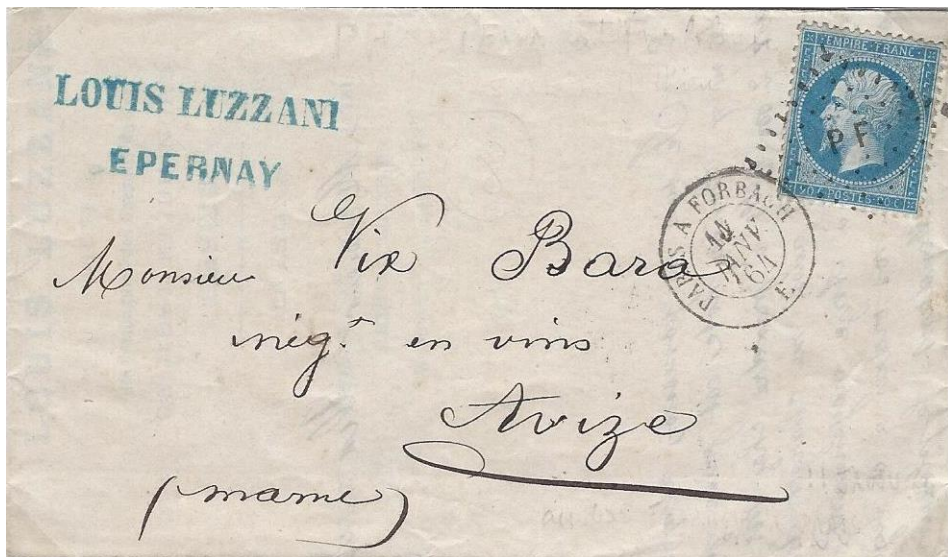 LOUIS LUZZANI
EPERNAY
EMPIRE FRANC
PF
20 C POSTES 20 C
PARIS A FORBACH
JANV
64
Monsieur Vix Bara
négt. en vins
Avize
(marne)